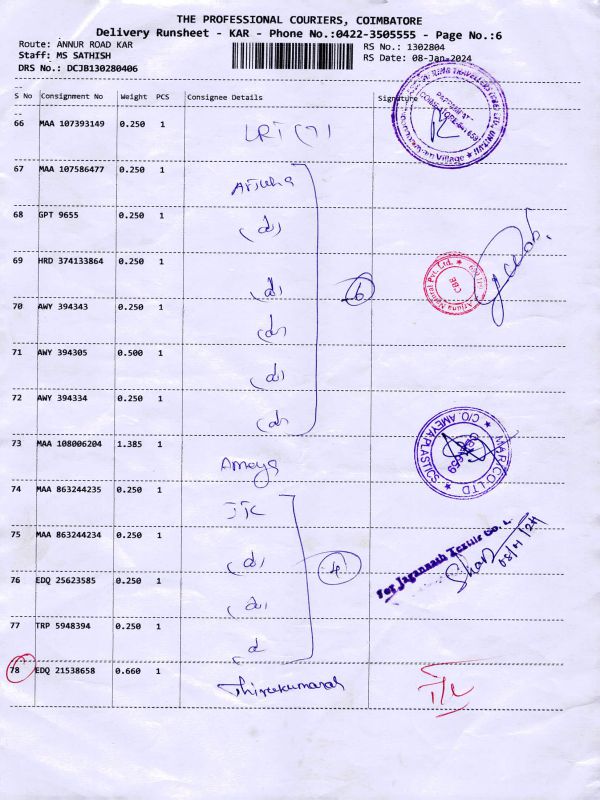 THE PROFESSIONAL COURIERS, COIMBATORE
Delivery Runsheet - KAR - Phone No.:0422-3505555 - Page No.:6
Route: ANNUR ROAD KAR
RS No.: 1302804
Staff: MS SATHISH
RS Date: 08-Jan-2024
DRS No.: DCJB130280406
S No Consignment No Weight PCS Consignee Details Signature
66 MAA 107393149 0.250 1
67 MAA 107586477 0.250 1
68 GPT 9655 0.250 1 (d)
69 HRD 374133864 0.250 1 (d)
6
70 AWY 394343 0.250 1 (d)
71 AWY 394305 0.500 1 (d)
72 AWY 394334 0.250 1 (d)
73 MAA 108006204 1.385 1 Ameya
MARICO LTD
C/O. AMEYA PLASTICS
74 MAA 863244235 0.250 1 JTC
75 MAA 863244234 0.250 1 (d)
4
For Jagannath Textile Co.
08/1/24
76 EDQ 25623585 0.250 1 (d)
77 TRP 5948394 0.250 1 d
78 EDQ 21538658 0.660 1 Thirukumaran